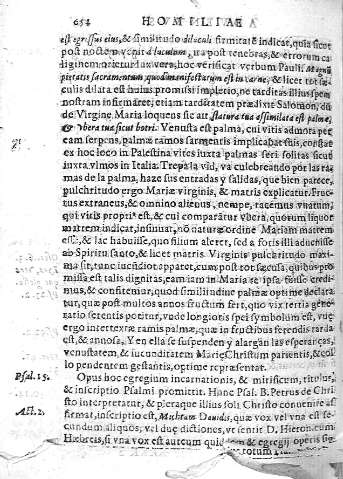 654 HOMILIAE A
est egressus eius, & similitudo diluculi firmitatē indicat, quia sicut
post noctem venit diluculum, ita post tenebras, & errorum ca
liginem orietur lux vera, hoc verificat verbum Pauli. At magnū
pietatis sacramentum, quod manifestatum est in carne, & licet sæ
culis dilata est huius promissi impletio, ne tarditas illius spem
nostram infirmaret, etiam tarditatem prædixit Salomon, dū
de Virgine Maria loquens sic ait, statura tua assimilata est palmæ,
& vbera tua sicut botri. Venusta est palma, cui vitis admota per
eam serpens, palmæ ramos sarmentis implicabat suis, constat
ex hoc loco in Palestina vites iuxta palmas seri solitas sicut
iuxta vlmos in Italia. Trepa la vid, va culebreando por las ra
mas de la palma, haze sus entradas y salidas, que bien parece,
pulchritudo ergo Mariæ virginis, & matris explicatur. Fruc
tus extraneus, & omnino alienus, nempe, racemus vnatum,
qui vitis propri⁹ est, & cui comparātur vbera, quorum liquor
mattem indicat, insinuat, nō naturæ ordine Mariam mattem
esse, & lac habuisse, quo filium aleret, sed a foris illi aduenisse
ab Spiritu santo, & licet matris Virginis pulchritudo maxi
ma sit, tunc iucūdior apparet, cum post tot sæcula, quibus pro
missa est talis dignitas, eam iam in Maria re ipsa fuisse credi
mus, & confitemur, quod similitudine palmæ optime declara
tur, quæ post multos annos fructum fert, quo vix tertia gene
ratio serentis potitur, vnde longioris spei symbolum est, vuę
ergo intertextæ ramis palmæ, quæ in fructibus ferendis tarda
est, & annosa, Y en ella se suspenden y alargan las esperanças,
venustatem, & iucunditatem Mariæ Christum parientis, & col
lo pendentem gestantis, optime repræsentat.
Psal. 15. Opus hoc egregium incarnationis, & mirificum, titulus,
& inscriptio Psalmi promittit. Hunc Psal. B. Petrus de Chri
Act. 2. sto interpretatur, & pleraque illius soli Christo conuenire af
firmat, inscriptio est, Michtam Dauidis, quæ vox vel vna est se
cundum aliquos, vel duę dictiones, vt sentit D. Hieronicum
Hæbreis, si vna vox est autecum quiddam & egregij operis sig
totum